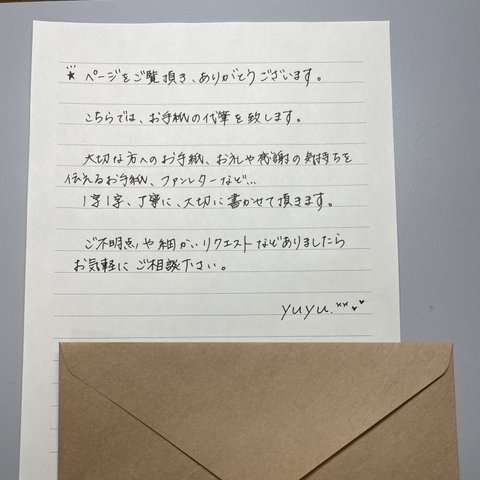 ★ ページをご覧頂き、ありがとうございます。
こちらでは、お手紙の代筆を致します。
大切な方へのお手紙、お礼や感謝の気持ちを
伝えるお手紙、ファンレターなど…
1字1字、丁寧に、大切に書かせて頂きます。
ご不明点や細かいリクエストなどありましたら
お気軽にご相談下さい。
yuyu.